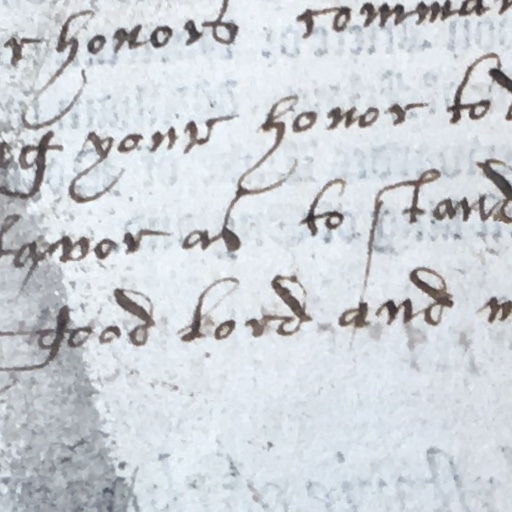 r honors comman
ng your honor to d
favor as to stand
good Lord and m